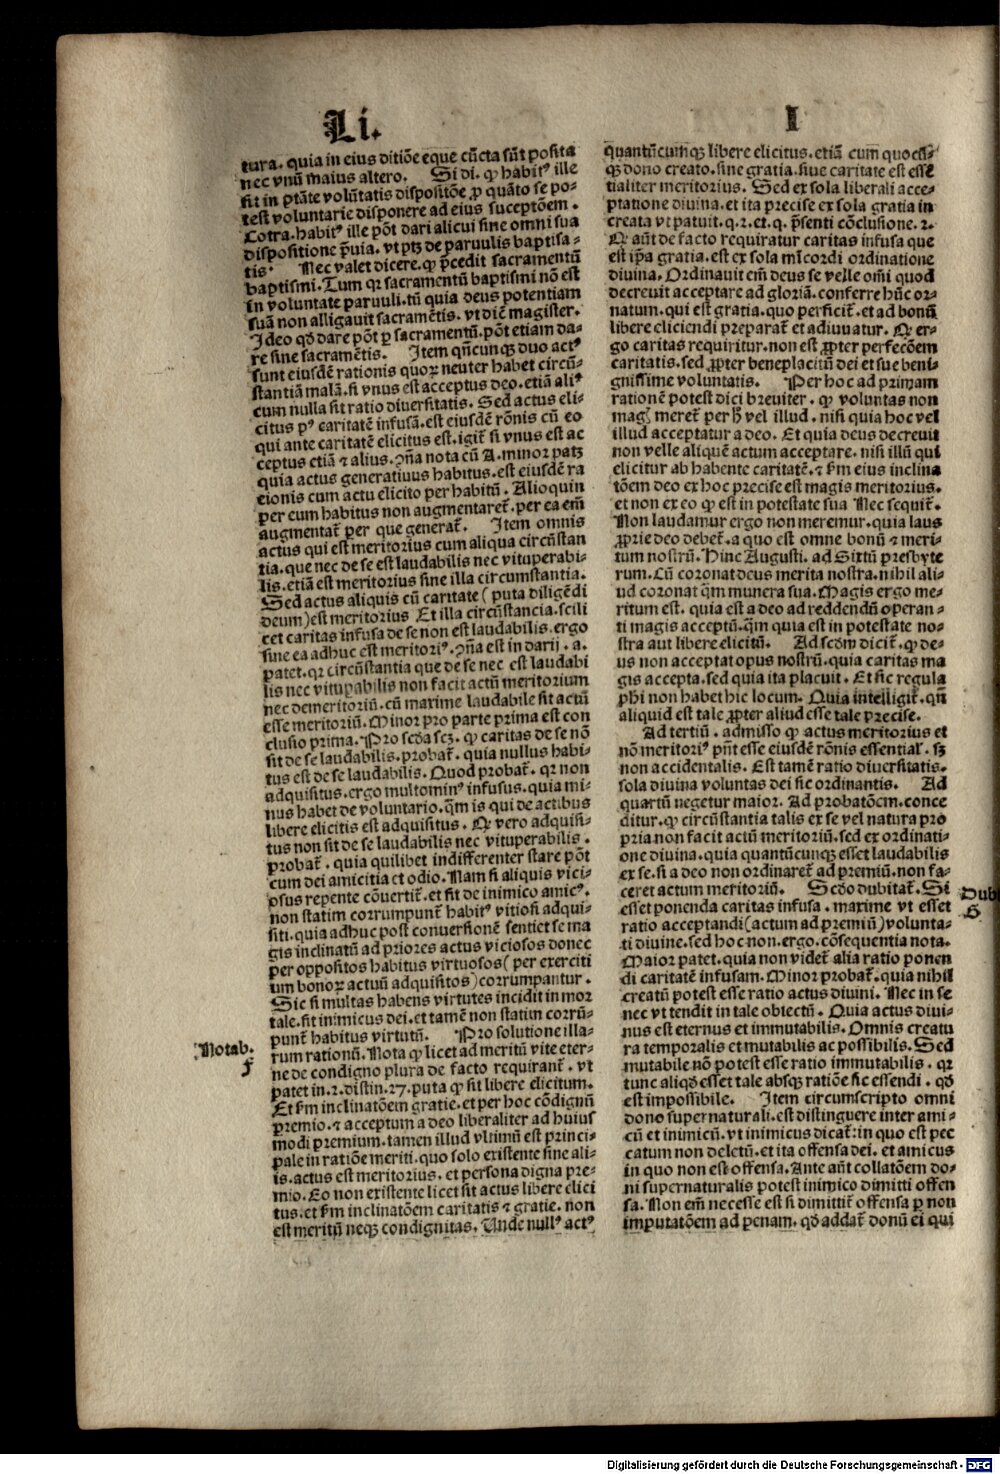 Li.
I
tura. quia in eius ditiõe eque cũcta sũt posita
nec vnũ maius altero. Si di. ꝙ habitꝰ ille
sit in ptãte volũtatis dispositõe ꝓ quãto se po-
test voluntarie disponere ad eius susceptõem.
Cotra. habitꝰ ille põt dari alicui sine omni sua
dispositione p̃uia. vt ptꝫ de paruulis baptisa-
tis. Nec valet dicere. ꝙ p̃cedit sacramentũ
baptismi. Tum qꝛ sacramentũ baptismi nõ est
in voluntate paruuli. tũ quia deus potentiam
suã non alligauit sacramẽtis. vt diẽ magister.
Ideo qđ dare põt ꝑ sacramentũ. põt etiam da-
re sine sacramẽtis. Item qñcunqꝫ duo actꝰ
sunt eiusdẽ rationis quoꝝ neuter habet circũ-
stantiã malã. si vnus est acceptus deo. etiã aliꝰ
cum nulla sit ratio diuersitatis. Sed actus eli-
citus pꝰ caritatẽ infusã. est eiusdẽ rõnis cũ eo
qui ante caritatẽ elicitus est. igit̃ si vnus est ac
ceptus etiã ⁊ alius. ꝯña nota cũ A. minor patꝫ
quia actus generatiuus habitus. est eiusdẽ ra
tionis cum actu elicito per habitũ. Alioquin
per eum habitus non augmentaret̃. per ea em̃
augmentat̃ per que generat̃. Item omnis
actus qui est meritorius cum aliqua circũstan
tia. que nec de se est laudabilis nec vituperabi-
lis. etiã est meritorius sine illa circumstantia.
Sed actus aliquis cũ caritate (puta diligẽdi
deum) est meritorius Et illa circũstancia. scili
cet caritas infusa de se non est laudabilis. ergo
sine ea adhuc est meritoriꝰ. ꝯña est in darij. a.
patet. qꝛ circũstantia que de se nec est laudabi
lis nec vitupabilis non facit actũ meritorium
nec demeritoriũ. cũ maxime laudabile sit actũ
esse meritoriũ. Minor pro parte prima est con
clusio prima. Pro scđa scꝫ. ꝙ caritas de se nõ
sit de se laudabilis. probat̃. quia nullus habi-
tus est de se laudabilis. Quod probat̃. qꝛ non
adquisitus. ergo multominꝰ infusus. quia mi-
nus habet de voluntario. q̃m is qui de actibus
libere elicitis est adquisitus. Q vero adquisi-
tus non sit de se laudabilis nec vituperabilis.
probat̃. quia quilibet indifferenter stare põt
cum dei amicitia et odio. Nam si aliquis vici-
osus repente cõuertit̃. et fit de inimico amicꝰ.
non statim corrumpunt̃ habitꝰ vitiosi adqui-
siti. quia adhuc post conuersionẽ sentiet se ma
gis inclinatũ ad priores actus viciosos donec
per oppositos habitus virtuosos (per exerciti
um bonoꝝ actuũ adquisitos) corrumpantur.
Sic si multas habens virtutes incidit in mor
tale. fit inimicus dei. et tamẽ non statim corrũ-
punt̃ habitus virtutũ. Pro solutione illa-
rum rationũ. Nota ꝙ licet ad meritũ vite eter-
ne de condigno plura de facto requirant̃. vt
patet in. 2. distin. 27. puta ꝙ sit libere elicitum.
Et ẜm inclinatõem gratie. et per hoc cõdignũ
premio. ⁊ acceptum a deo liberaliter ad huius
modi premium. tamen illud vltimũ est princi-
pale in ratiõe meriti. quo solo existente sine ali-
is. actus est meritorius. et persona digna pre-
mio. Eo non existente licet sit actus libere elici
tus. et ẜm inclinatõem caritatis ⁊ gratie. non
est meritũ neqꝫ condignitas. Unde nullꝰ actꝰ
Notab.
f
quantũcumqꝫ libere elicitus. etiã cum quocũ-
qꝫ dono creato. sine gratia. siue caritate est essẽ
tialiter meritorius. Sed ex sola liberali acce-
ptatione diuina. et ita precise ex sola gratia in
creata vt patuit. q. 1. et. q. p̃senti cõclusione. 2.
Q aũt de facto requiratur caritas infusa que
est ip̃a gratia. est ex sola m̃icordi ordinatione
diuina. Ordinauit em̃ deus se velle om̃i quod
decreuit acceptare ad gloriã. conferre hũc or-
natum. qui est gratia. quo perficit̃. et ad bonũ
libere eliciendi preparat̃ et adiuuatur. Q er-
go caritas requiritur. non est ꝓpter perfecõem
caritatis. sed ꝓpter beneplacitũ dei et sue beni-
gnissime voluntatis. Per hoc ad primam
rationẽ potest dici breuiter. ꝙ voluntas non
mag̃ meret̃ per h̃ vel illud. nisi quia hoc vel
illud acceptatur a deo. Et quia deus decreuit
non velle aliquẽ actum acceptare. nisi illũ qui
elicitur ab habente caritatẽ. ⁊ ẜm eius inclina
tõem deo ex hoc precise est magis meritorius.
et non ex eo ꝙ est in potestate sua Nec sequit̃.
Non laudamur ergo non meremur. quia laus
ꝓprie deo debet̃. a quo est omne bonũ ⁊ meri-
tum nostrũ. Hinc Augusti. ad Sixtũ presbyte
rum. Cũ coronat deus merita nostra. nihil ali-
ud coronat q̃m munera sua. Magis ergo me-
ritum est. quia est a deo ad reddendũ operan-
ti magis acceptũ. q̃m quia est in potestate no-
stra aut libere elicitũ. Ad scđm dicit̃. ꝙ de-
us non acceptat opus nostrũ. quia caritas ma
gis accepta. sed quia ita placuit. Et sic regula
phi non habet hic locum. Quia intelligit̃. qñ
aliquid est tale ꝓpter aliud esse tale precise.
Ad tertiũ. admisso ꝙ actus meritorius et
nõ meritoriꝰ pñt esse eiusdẽ rõnis essential̃. sꝫ
non accidentalis. Est tamẽ ratio diuersitatis.
sola diuina voluntas dei sic ordinantis. Ad
quartũ negetur maior. Ad probatõem. conce
ditur. ꝙ circũstantia talis ex se vel natura pro
pria non facit actũ meritoriũ. sed ex ordinati-
one diuina. quia quantũcunqꝫ esset laudabilis
ex se. si a deo non ordinaret̃ ad premiũ. non fa-
ceret actum meritoriũ. Scđo dubitat̃. Si
esset ponenda caritas infusa. maxime vt esset
ratio acceptandi (actum ad premiũ) volunta-
ti diuine. sed hoc non. ergo. cõsequentia nota.
Maior patet. quia non videt̃ alia ratio ponen
di caritatẽ infusam. Minor probat̃. quia nihil
creatũ potest esse ratio actus diuini. Nec in se
nec vt tendit in tale obiectũ. Quia actus diui-
nus est eternus et immutabilis. Omnis creatu
ra temporalis et mutabilis ac possibilis. Sed
mutabile nõ potest esse ratio immutabilis. qꝛ
tunc aliqđ esset tale absqꝫ ratiõe sic essendi. qđ
est impossibile. Item circumscripto omni
dono supernaturali. est distinguere inter ami-
cũ et inimicũ. vt inimicus dicat̃: in quo est pec
catum non deletũ. et ita offensa dei. et amicus
in quo non est offensa. Ante aũt collatõem do-
ni supernaturalis potest inimico dimitti offen
sa. Non em̃ necesse est si dimittit̃ offensa ꝑ non
imputatõem ad penam. qđ addat̃ donũ ei qui
Dub
G
Digitalisierung gefördert durch die Deutsche Forschungsgemeinschaft - DFG